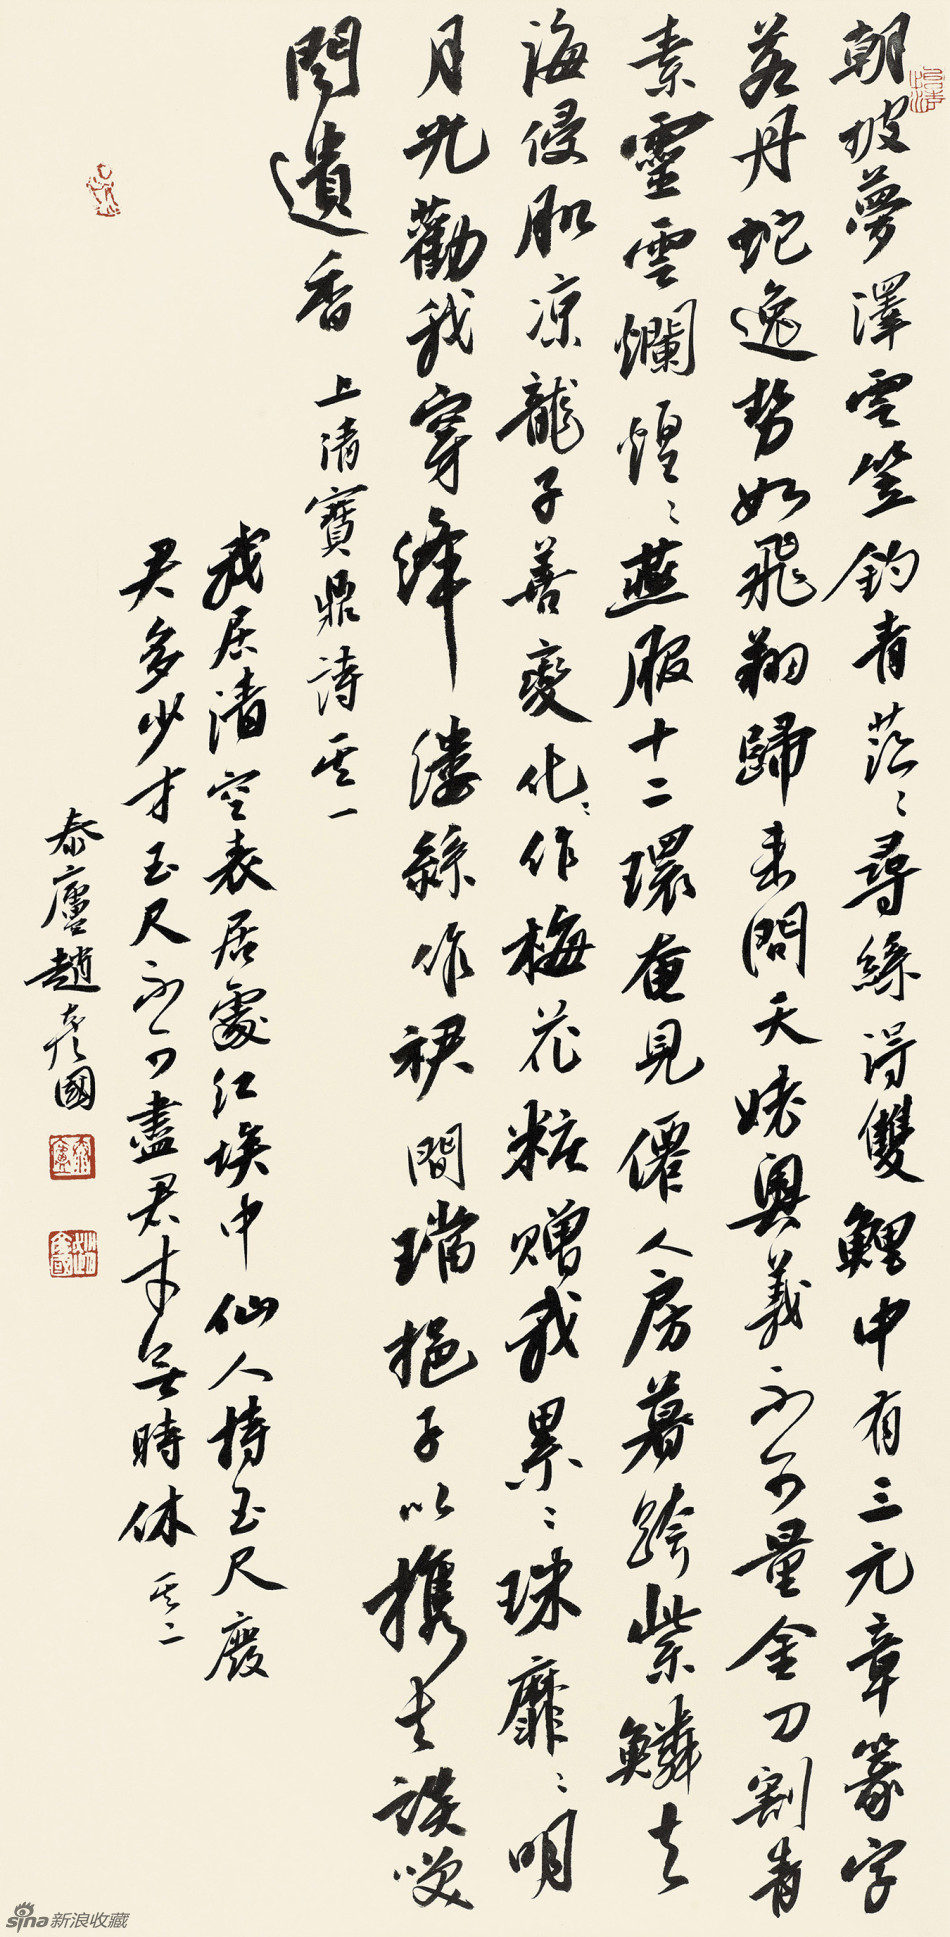 朝披夢澤雲笠釣青茫〻尋絲得雙鯉中有三元章篆字
若丹蛇逸勢如飛翔歸来問天姥奥義不可量金刀割青
素靈雲爛煌〻燕服十二環奄見僊人房暮跨紫鱗去
海侵肌凉龍子善變化〻作梅花粧贈我累〻珠靡〻明
月光勸我穿絳縷絲作裙間璫挹子以攜去談笑
間遺香 上清寶鼎詩其一
我居清空表居處红埃中仙人持玉尺廢
君多少才玉尺不可盡君才無時休 其二
泰廬趙彦國
泰廬
sina新浪收藏